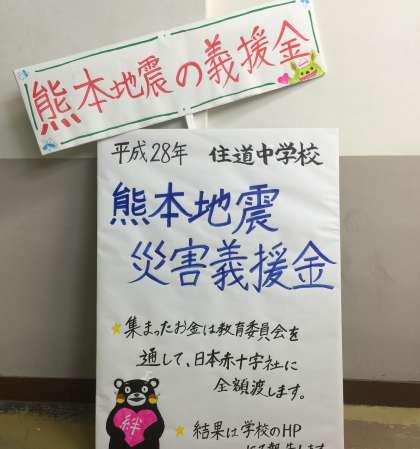 熊本地震の義援金
平成28年 住道中学校
熊本地震
災害義援金
集まったお金は教育委員会を
通して、日本赤十字社に
全額渡します。
絆
結果は学校のHP
にて報告します